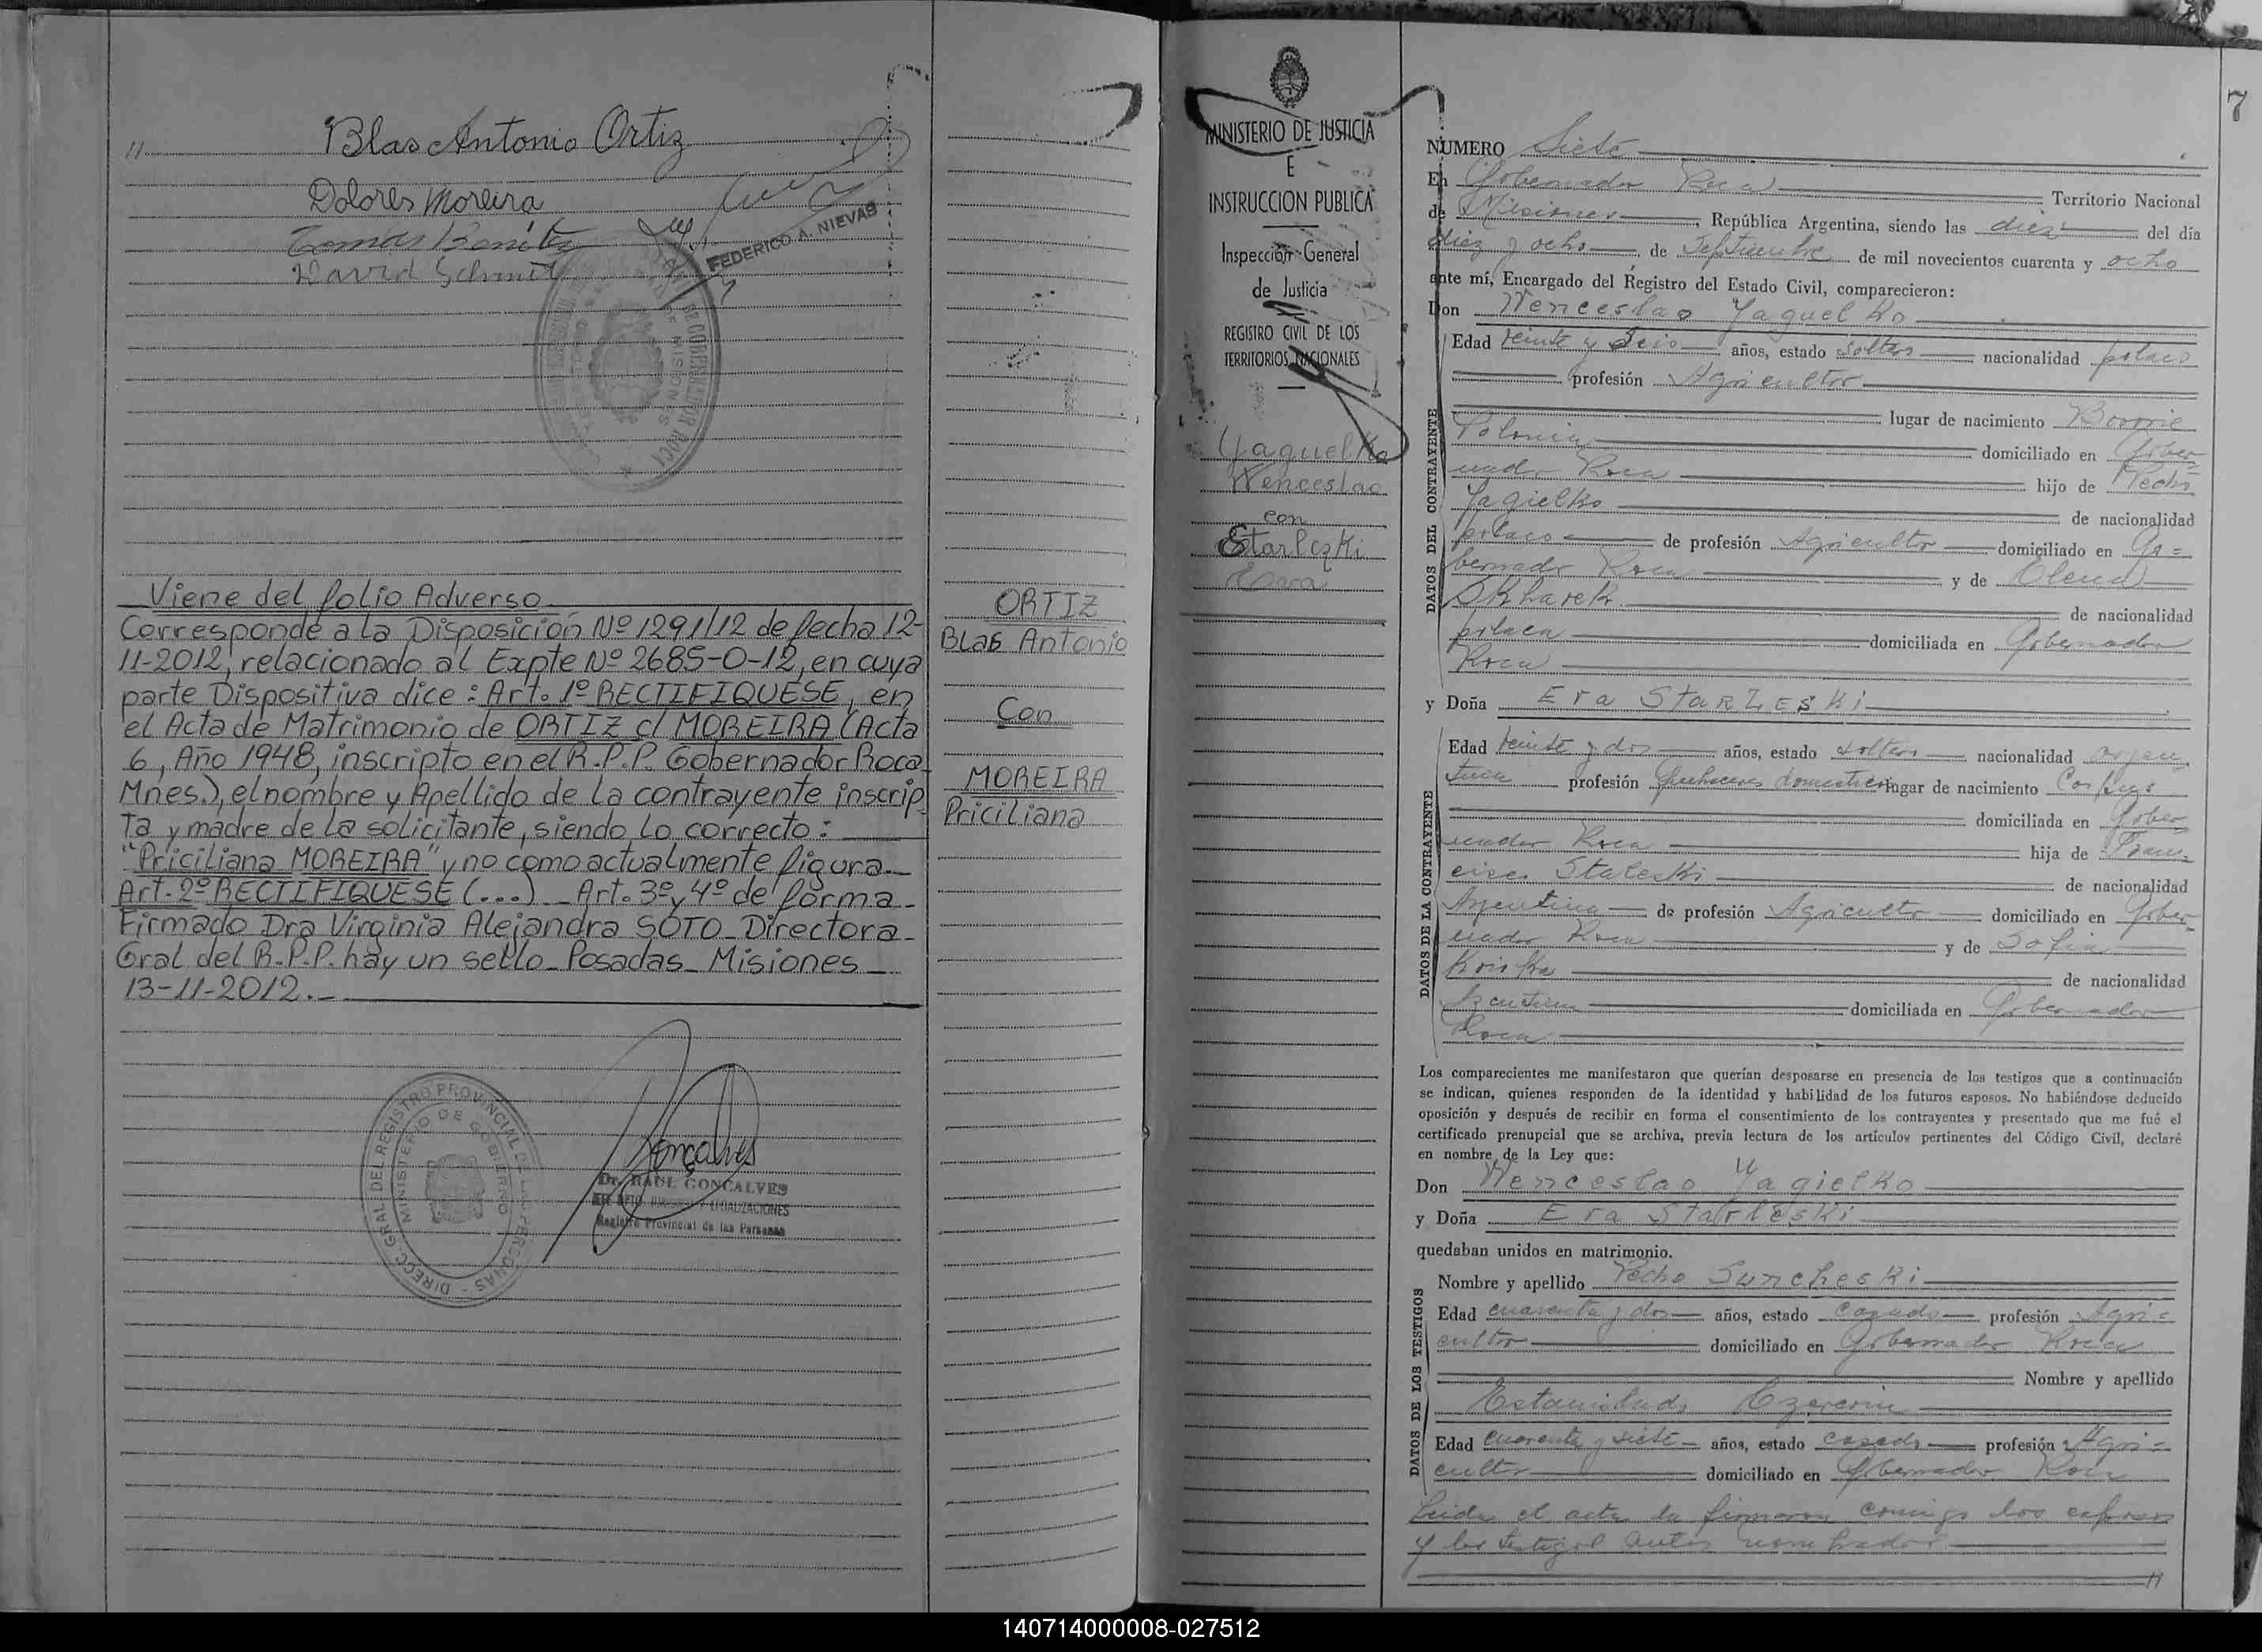 11
Blas Antonio Ortiz
Dolores Moreira
Tomás Benitez
David Schmit
FEDERICO A. NIEVAS
Viene del folio Adverso
Corresponde a la Disposición Nº 1291/12 de fecha 12-
11-2012, relacionado al Expte Nº 2685-0-12, en cuya
parte Dispositiva dice: Art. 1º RECTIFIQUESE, en
el Acta de Matrimonio de ORTIZ c/ MOREIRA (Acta
6, Año 1948, inscripto en el R.P.P. Gobernador Roca
Mnes.), el nombre y Apellido de la contrayente inscrip
Ta y madre de la solicitante, siendo lo correcto:
"Priciliana MOREIRA" y no como actualmente figura.
Art. 2º RECTIFIQUESE (...) _ Art. 3º y 4º de forma.
Firmado Dra Virginia Alejandra SOTO_Directora_
Gral del R.P.P. hay un sello_Posadas_Misiones_
13-11-2012._
DIRECC. GRAL. DEL REGISTRO PROVINCIAL DE LAS PERSONAS
MINISTERIO DE GOBIERNO
Gonçalves
Dr. RAUL GONCALVES
Registro Provincial de las Personas
ORTIZ
Blas Antonio
Con
MOREIRA
Priciliana
MINISTERIO DE JUSTICIA
E
INSTRUCCION PUBLICA
Inspección General
de Justicia
REGISTRO CIVIL DE LOS
TERRITORIOS NACIONALES
Yaguelko
Wenceslao
con
Starlezki
Eva
7
NUMERO Siete
En Gobernador Roca Territorio Nacional
de Misiones, República Argentina, siendo las diez del día
diez y ocho de Septiembre de mil novecientos cuarenta y ocho
ante mí, Encargado del Registro del Estado Civil, comparecieron:
Don Wenceslao Yaguelko
DATOS DEL CONTRAYENTE
Edad veinte y seis años, estado soltero nacionalidad polaco
profesión Agricultor
lugar de nacimiento
Polonia domiciliado en Gober-
nador Roca hijo de Pedro
Yagielko de nacionalidad
polaco de profesión Agricultor domiciliado en Go=
bernador Roca y de Elena
Skharek de nacionalidad
polaca domiciliada en Gobernador
Roca
y Doña Eva Starleski
DATOS DE LA CONTRAYENTE
Edad veinte y dos años, estado soltera nacionalidad argen
tina profesión Quehaceres domesticos lugar de nacimiento Corpus
domiciliada en Gober
nador Roca hija de Fran=
cisco Staleski de nacionalidad
Argentina de profesión Agricultor domiciliado en Gober-
nador Roca y de Sofia
de nacionalidad
domiciliada en Gobernador
Roca
Los comparecientes me manifestaron que querían desposarse en presencia de los testigos que a continuación
se indican, quienes responden de la identidad y habilidad de los futuros esposos. No habiéndose deducido
oposición y después de recibir en forma el consentimiento de los contrayentes y presentado que me fué el
certificado prenupcial que se archiva, previa lectura de los artículos pertinentes del Código Civil, declaré
en nombre de la Ley que:
Don Wenceslao Yagielko
y Doña Eva Starleski
quedaban unidos en matrimonio.
DATOS DE LOS TESTIGOS
Nombre y apellido Pedro Suncheski
Edad cuarenta y dos años, estado casado profesión Agri=
cultor domiciliado en Gobernador Roca
Nombre y apellido
Estanislado
Edad cuarenta y siete años, estado casado profesión Agri=
cultor domiciliado en Gobernador Roca
Leida el acta la firmaron conmigo los esposos
y los testigos antes nombrados
11
140714000008-027512